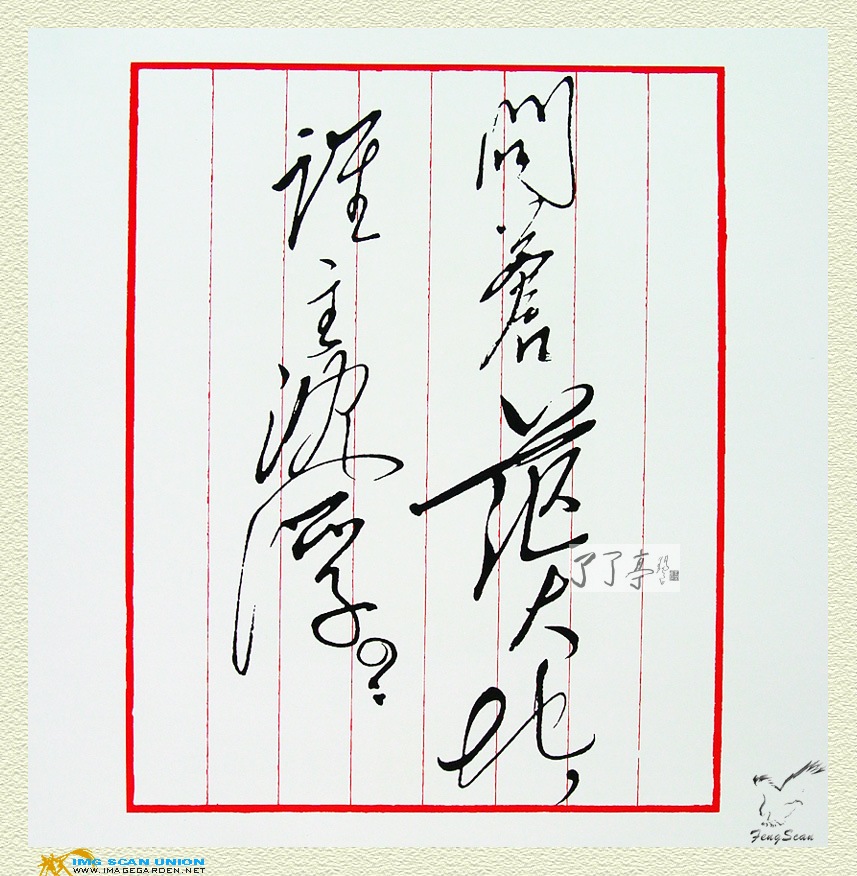 問蒼茫大地，
誰主沈浮？
了了亭
FengScan
IMG SCAN UNION
WWW.IMAGEGARDEN.NET